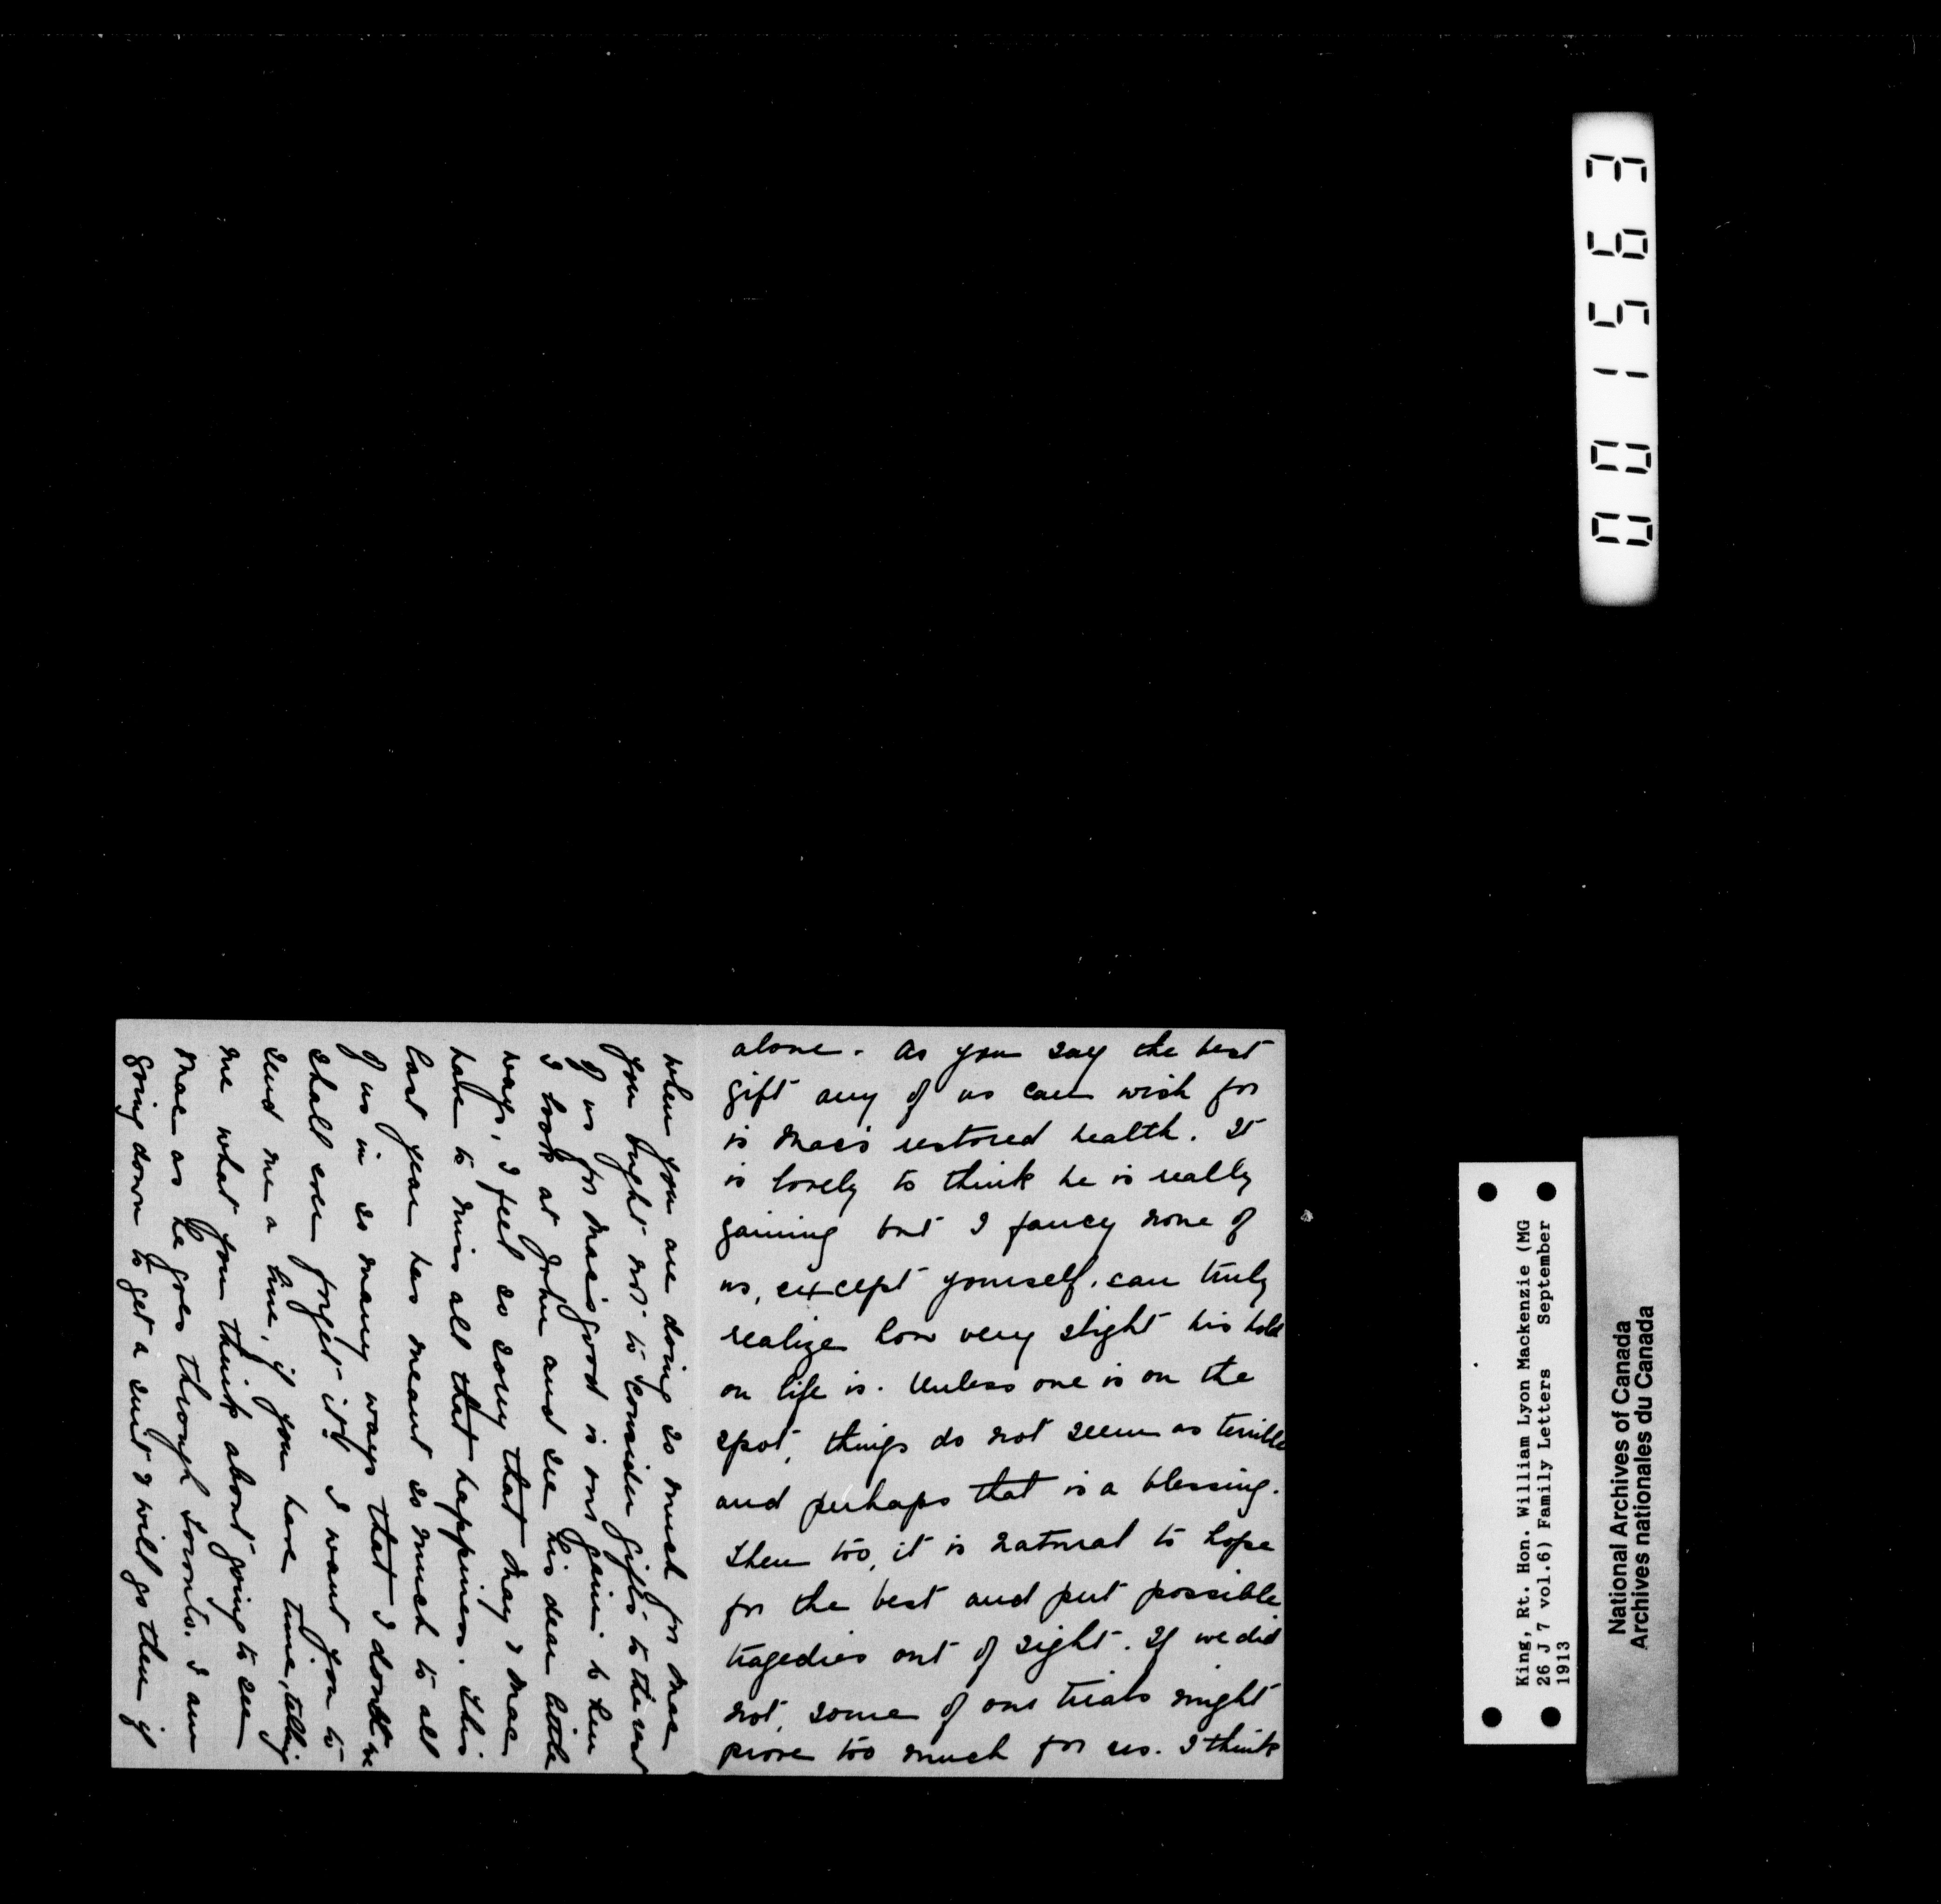 alone. As you say the best
gift any of us can wish for
is Mac's restored health. It
is lovely to think he is really
gaining but I fancy none of
us, except yourself, can truly
realize how very slight his hold
on life is. Unless one is on the
spot, things do not seem as terrible
and perhaps that is a blessing.
Then too, it is natural to hope
for the best and put possible
tragedies out of sight. If we did
not, some of our trials might
prove too much for us. I think
when you are doing so much for Mac
you ought not to consider gifts to the rest
of us for Mac's good is our gain
I look at John and see his dear little
ways, I feel so sorry that May & Mac
have to miss all that happiness. This
last year has meant so much to all
of us in so many ways that I doubt we
shall ever forget it. I want you to
send me a line, if you have time, telling
me what you think about going to see
Mac as he goes through Toronto. I am
going down to get a suit & will go then if
001563
King, Rt. Hon. William Lyon Mackenzie (MG
26 J 7 vol.6) Family Letters September
1913
National Archives of Canada
Archives nationales du Canada